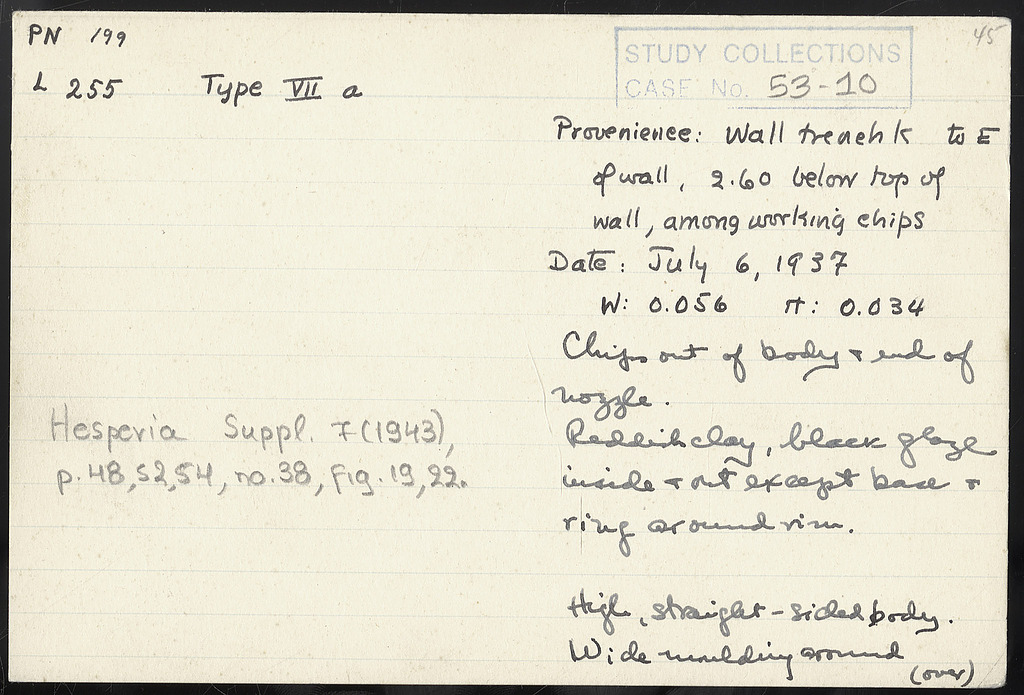 PN 199
45
STUDY COLLECTIONS
CASE No. 53-10
L 255 Type VII a
Provenience: Wall trench K to E
of wall, 2.60 below top of
wall, among working chips
Date: July 6, 1937
W: 0.056 H: 0.034
Chips out of body + end of
nozzle.
Reddish clay, black glaze
inside + out except base +
ring around rim.
Hesperia Suppl. 7 (1943),
p. 48, 52, 54, no. 38, Fig. 19, 22.
High, straight-sided body.
Wide moulding around
(over)